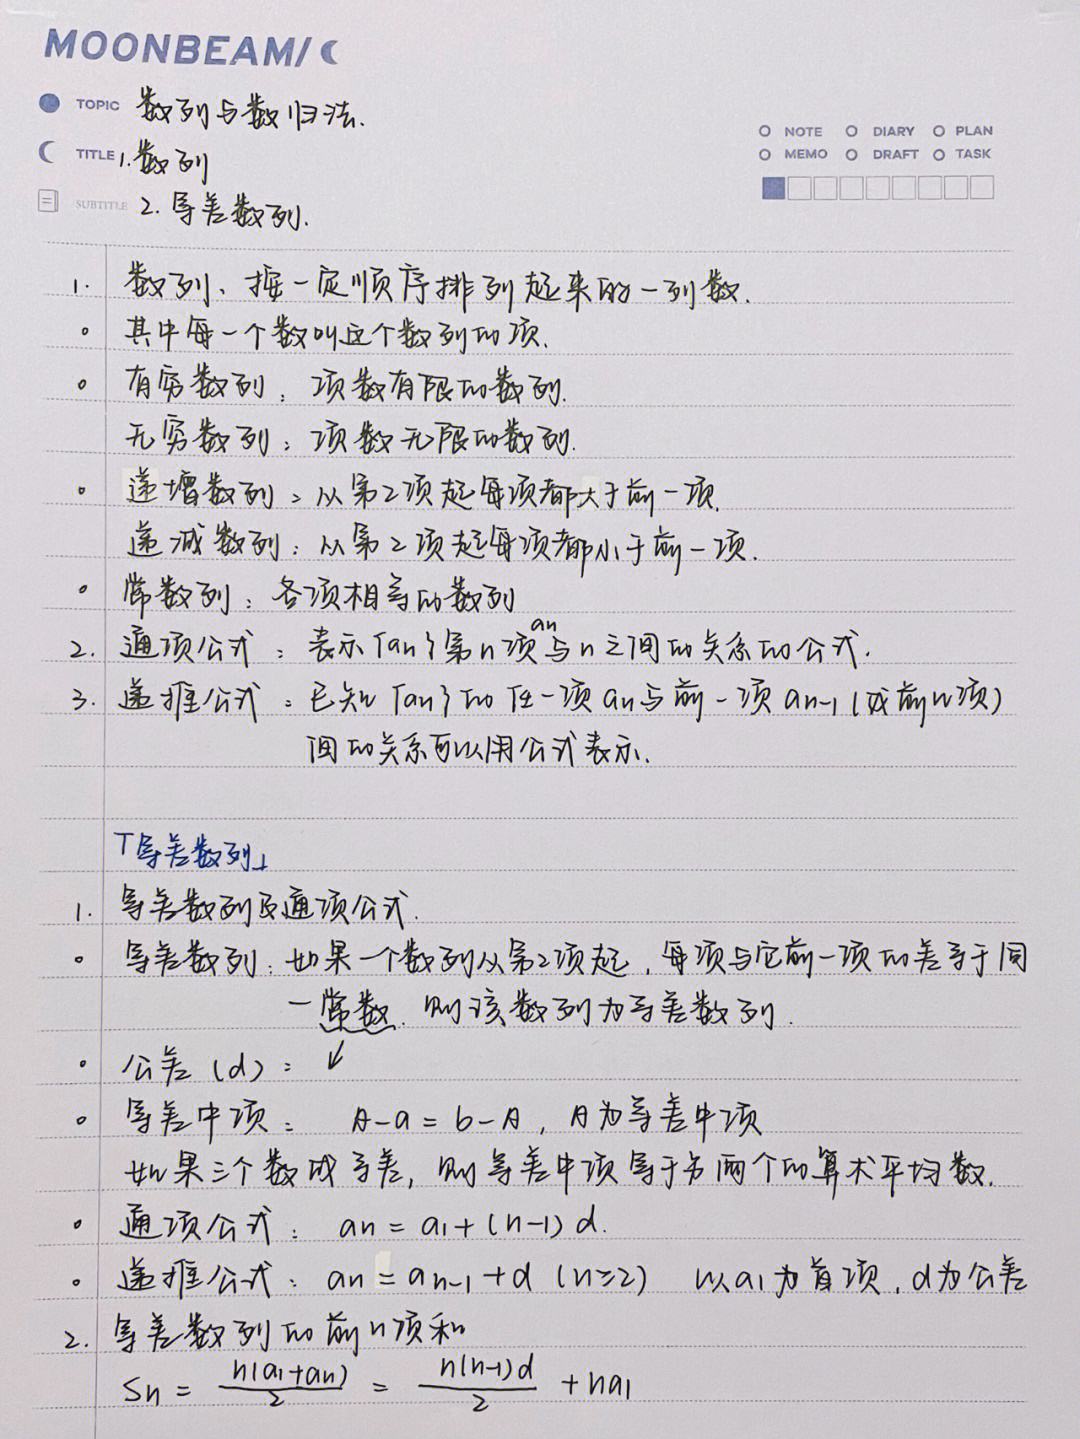 MOONBEAM/
TOPIC 数列与数归法.
NOTE DIARY PLAN
TITLE 1.数列
MEMO DRAFT TASK
SUBTITLE 2. 等差数列.
1. 数列、按一定顺序排列起来的一列数.
。其中每一个数叫这个数列的项.
。有穷数列：项数有限的数列.
无穷数列：项数无限的数列.
。递增数列：从第2项起每项都大于前一项.
递减数列：从第2项起每项都小于前一项.
。常数列：各项相等的数列
2. 通项公式：表示{an}第n项an与n之间的关系的公式.
3. 递推公式：已知{an}的任一项an与前一项an-1(或前n项)
间的关系可以用公式表示.
「等差数列」
1. 等差数列及通项公式.
。等差数列：如果一个数列从第2项起，每项与它前一项的差等于同
一常数.则该数列为等差数列.
。公差(d)：↙
。等差中项：A-a=b-A，A为等差中项
如果三个数成等差，则等差中项等于另两个的算术平均数.
。通项公式：an=a1+(n-1)d.
。递推公式：an=an-1+d (n≥2) 以a1为首项，d为公差
2. 等差数列的前n项和
Sn = n(a1+an)/2 = n(n-1)d/2 + na1